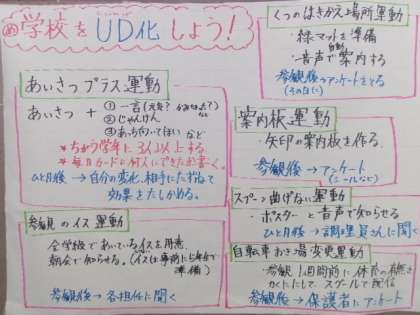 め 学校をUD化しよう!
あいさつプラス運動
あいさつ + ① 一言(元気? など)
② じゃんけん
③ あっち向いてほい など
* ちがう学年に3人以上する
* 毎日カードに何人にできたか書く。
ひと月後→自分の変化、相手にたずねて
効果をたしかめる。
参観のイス運動
全学校であいているイスを用意
朝会で知らせる。(イスは事前に5年生で
準備)
参観後→各担任に聞く
くつのはきかえ場所運動
・緑マットを準備
自動
・音声で案内する
参観後→アンケートをとる
(その日に)
案内板運動
・矢印の案内板を作る。
参観後→アンケート
(シールなど)
スプーン曲げない運動
・ポスターと音声で知らせる
ひと月後→調理員さんに聞く
自転車おき場変更運動
・参観1週間前に
スクールで配信
参観後→保護者にアンケート